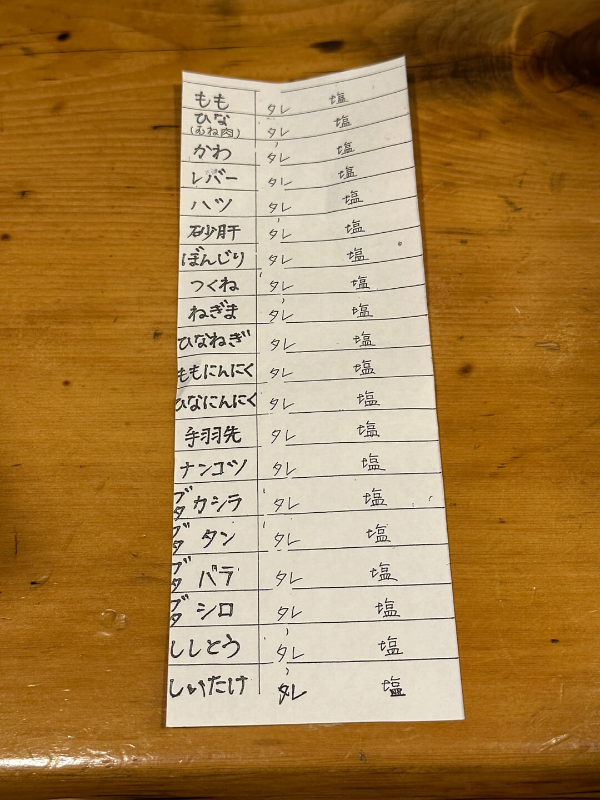 もも タレ 塩
ひな タレ 塩
(むね肉)
かわ タレ 塩
レバー タレ 塩
ハツ タレ 塩
砂肝 タレ 塩
ぼんじり タレ 塩
つくね タレ 塩
ねぎま タレ 塩
ひなねぎ タレ 塩
ももにんにく タレ 塩
ひなにんにく タレ 塩
手羽先 タレ 塩
ナンコツ タレ 塩
ブタカシラ タレ 塩
ブタタン タレ 塩
ブタバラ タレ 塩
ブタシロ タレ 塩
ししとう タレ 塩
しいたけ タレ 塩